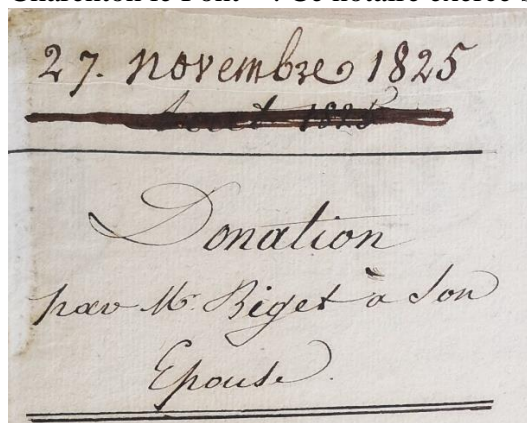 27. novembre 1825
Août 1825
Donation
par Mr. Biget à Son
Epouse.